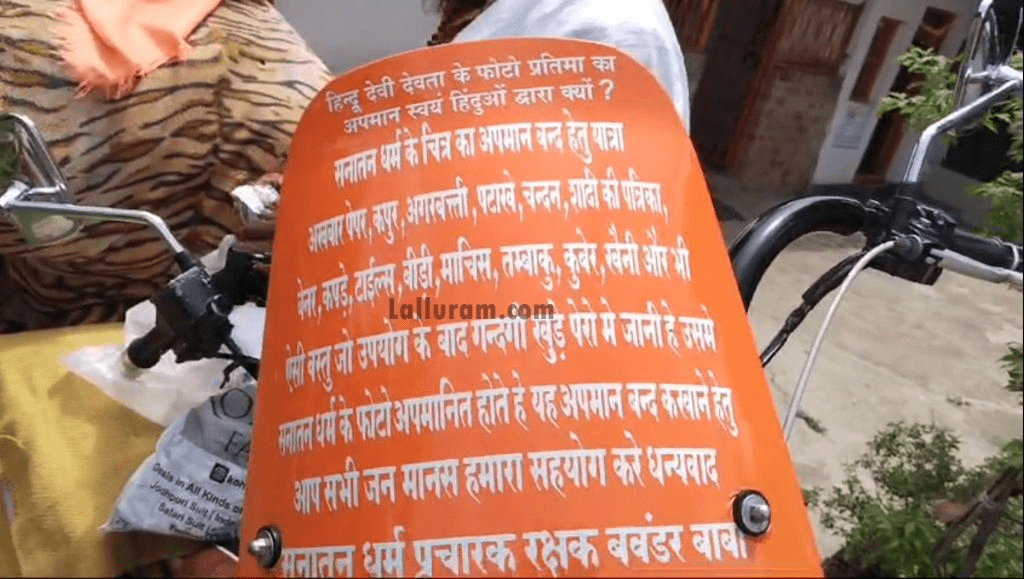 हिन्दू देवी देवता के फोटो प्रतिमा का
अपमान स्वयं हिंदुओं द्वारा क्यों ?
सनातन धर्म के चित्र का अपमान बन्द हेतु यात्रा
अखबार पेपर, कपुर, अगरबत्ती, पटाखे, चन्दन, शादी की पत्रिका,
बेनर, कपड़े, टाईल्स, बीडी, माचिस, तम्बाकु, कुबेर, खैनी और भी
Lalluram.com
ऐसी वस्तु जो उपयोग के बाद गन्दगी खुड़े पेरो मे जानी हे उसमे
सनातन धर्म के फोटो अपमानित होते हे यह अपमान बन्द करवाने हेतु
आप सभी जन मानस हमारा सहयोग करे धन्यवाद
सनातन धर्म प्रचारक रक्षक बवंडर बाबा
Deals in All Kinds
Jodhpuri Suit / Ind
Safari Suit